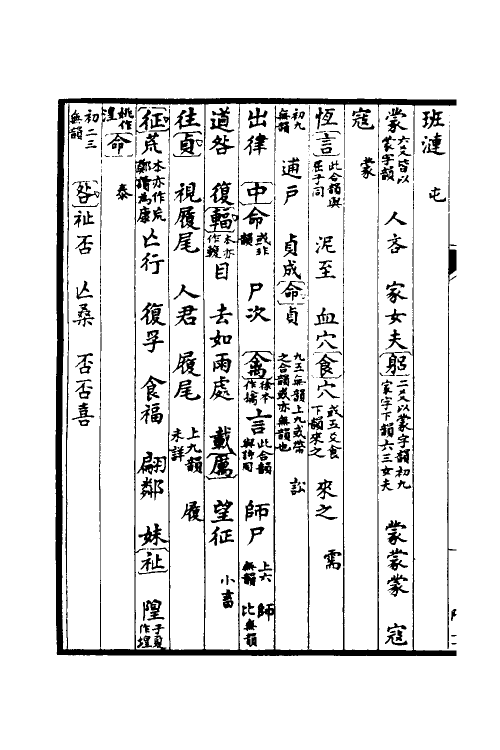 班漣　屯
蒙六爻皆以蒙字韻　人吝　家女夫躬二爻以蒙字韻初九家字下韻六三女夫　蒙蒙蒙　寇
寇　蒙
恆言此合韻與臣子同　泥至　血穴食穴或五爻食下韻來之　來之　需
初九無韻　逋戶　貞成命貞九五無韻上九或帶之合韻或亦無韻也　訟
出律　中命或非韻　尸次　禽徐本作擒言此合韻與師同　師尸　上六無韻　師　比無韻
道咎　復輻本亦作輹目　去如雨處　載厲　望征　小畜
往貞　視履尾　人君　履尾　上九韻未詳　履
征荒本亦作㠩鄭讀爲康亾行　復孚　食福　翩鄰　妹祉　隍子夏作堭
姚作湟命　泰
初二三無韻　咎祉否　亾桑　否否喜